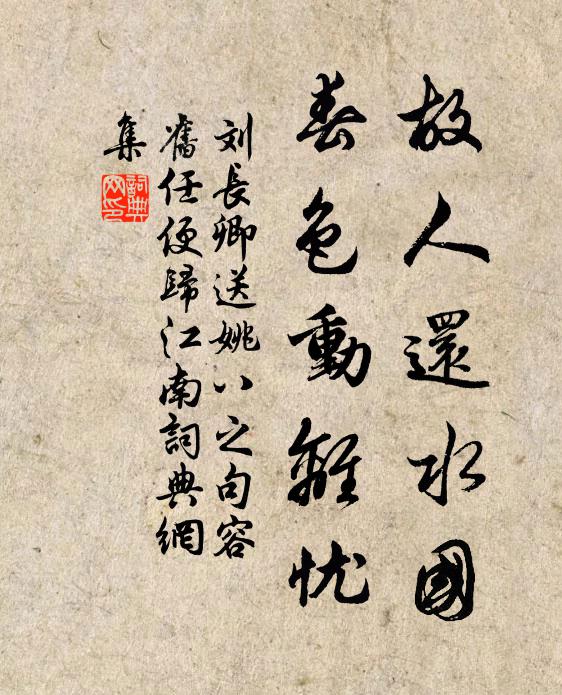 故人還水國
春色動離忧
刘長卿送姚八之句容
舊任便歸江南詞典網
集
詞典
网印